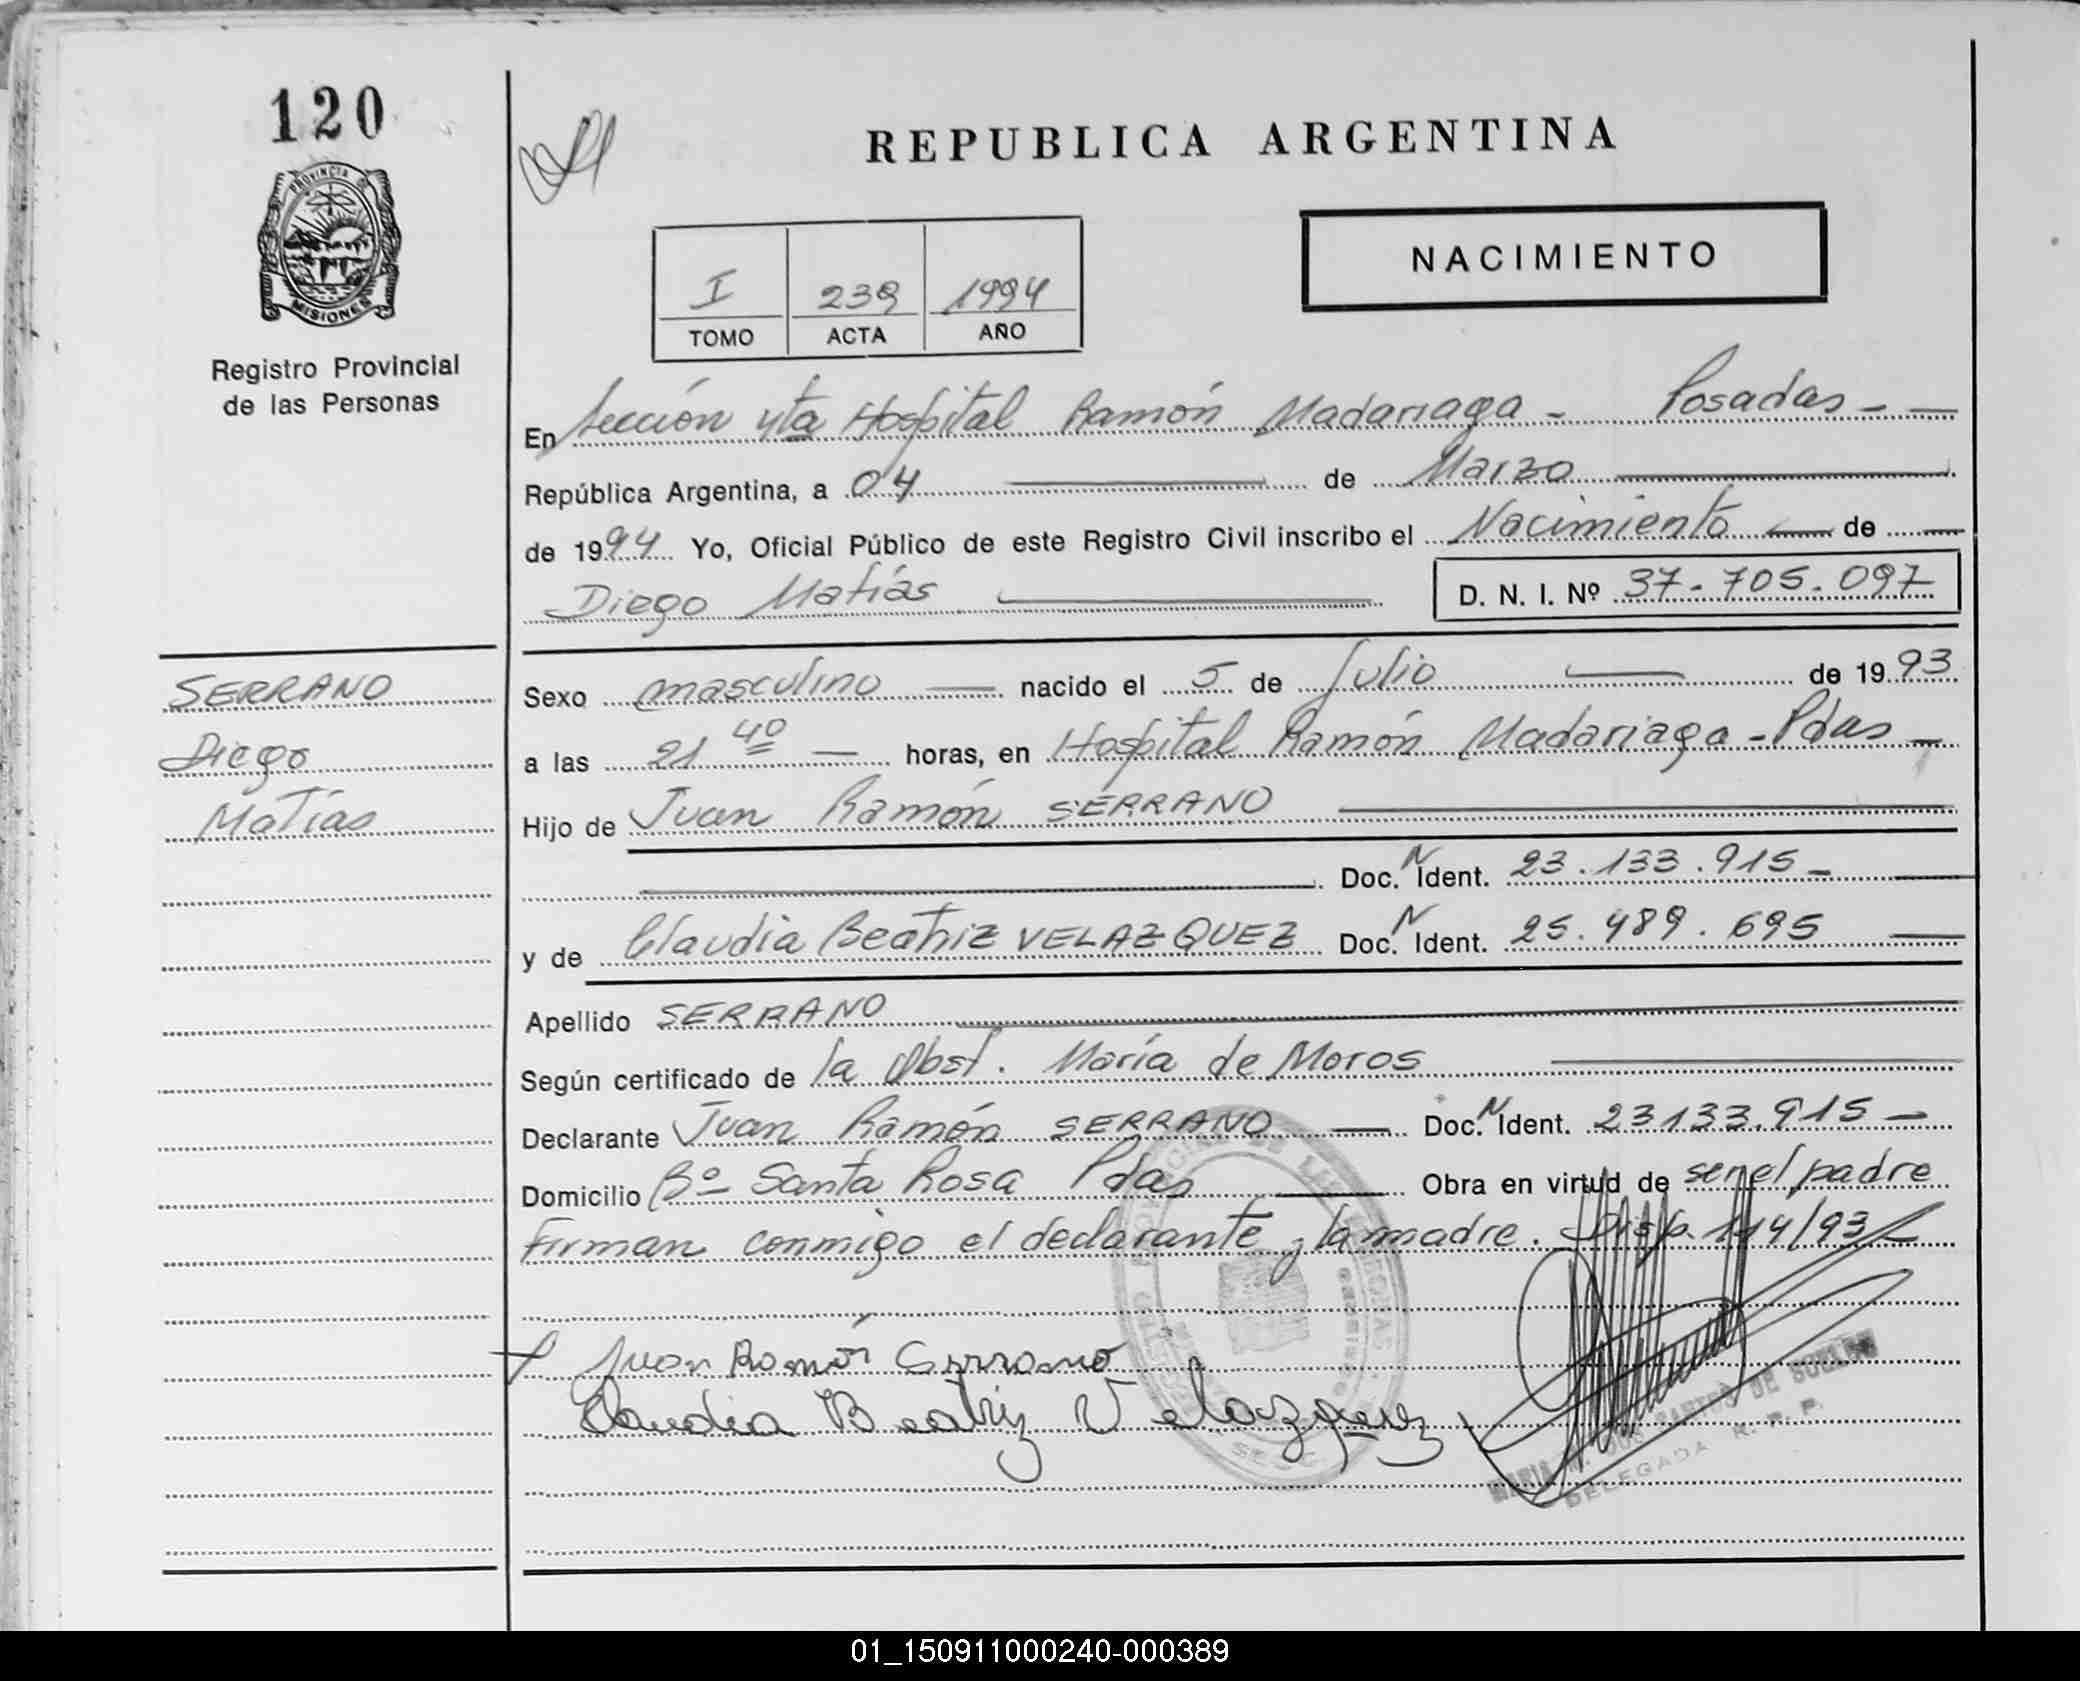 120
PROVINCIA DE
MISIONES
Registro Provincial
de las Personas
REPUBLICA ARGENTINA
NACIMIENTO
I 239 1994
TOMO ACTA AÑO
En Sección 4ta Hospital Ramón Madariaga - Posadas -
República Argentina, a 04 de Marzo
de 1994 Yo, Oficial Público de este Registro Civil inscribo el Nacimiento de
Diego Matías D. N. I. Nº 37.705.097
SERRANO
Diego
Matías
Sexo masculino nacido el 5 de Julio de 1993
a las 21 40 horas, en Hospital Ramón Madariaga - Pdas -
Hijo de Juan Ramón SERRANO
Doc. N Ident. 23.133.915 -
y de Claudia Beatriz VELAZQUEZ Doc. N Ident. 25.489.695
Apellido SERRANO
Según certificado de la Obst. María de Moros
Declarante Juan Ramón SERRANO Doc. N Ident. 23133.915 -
Domicilio Bº Santa Rosa Pdas Obra en virtud de ser el padre
Firman conmigo el declarante y la madre. Disp. 114/93
Juan Ramón Serrano
Claudia Beatriz Velazquez
DELEGADA R. P. P.
01_150911000240-000389